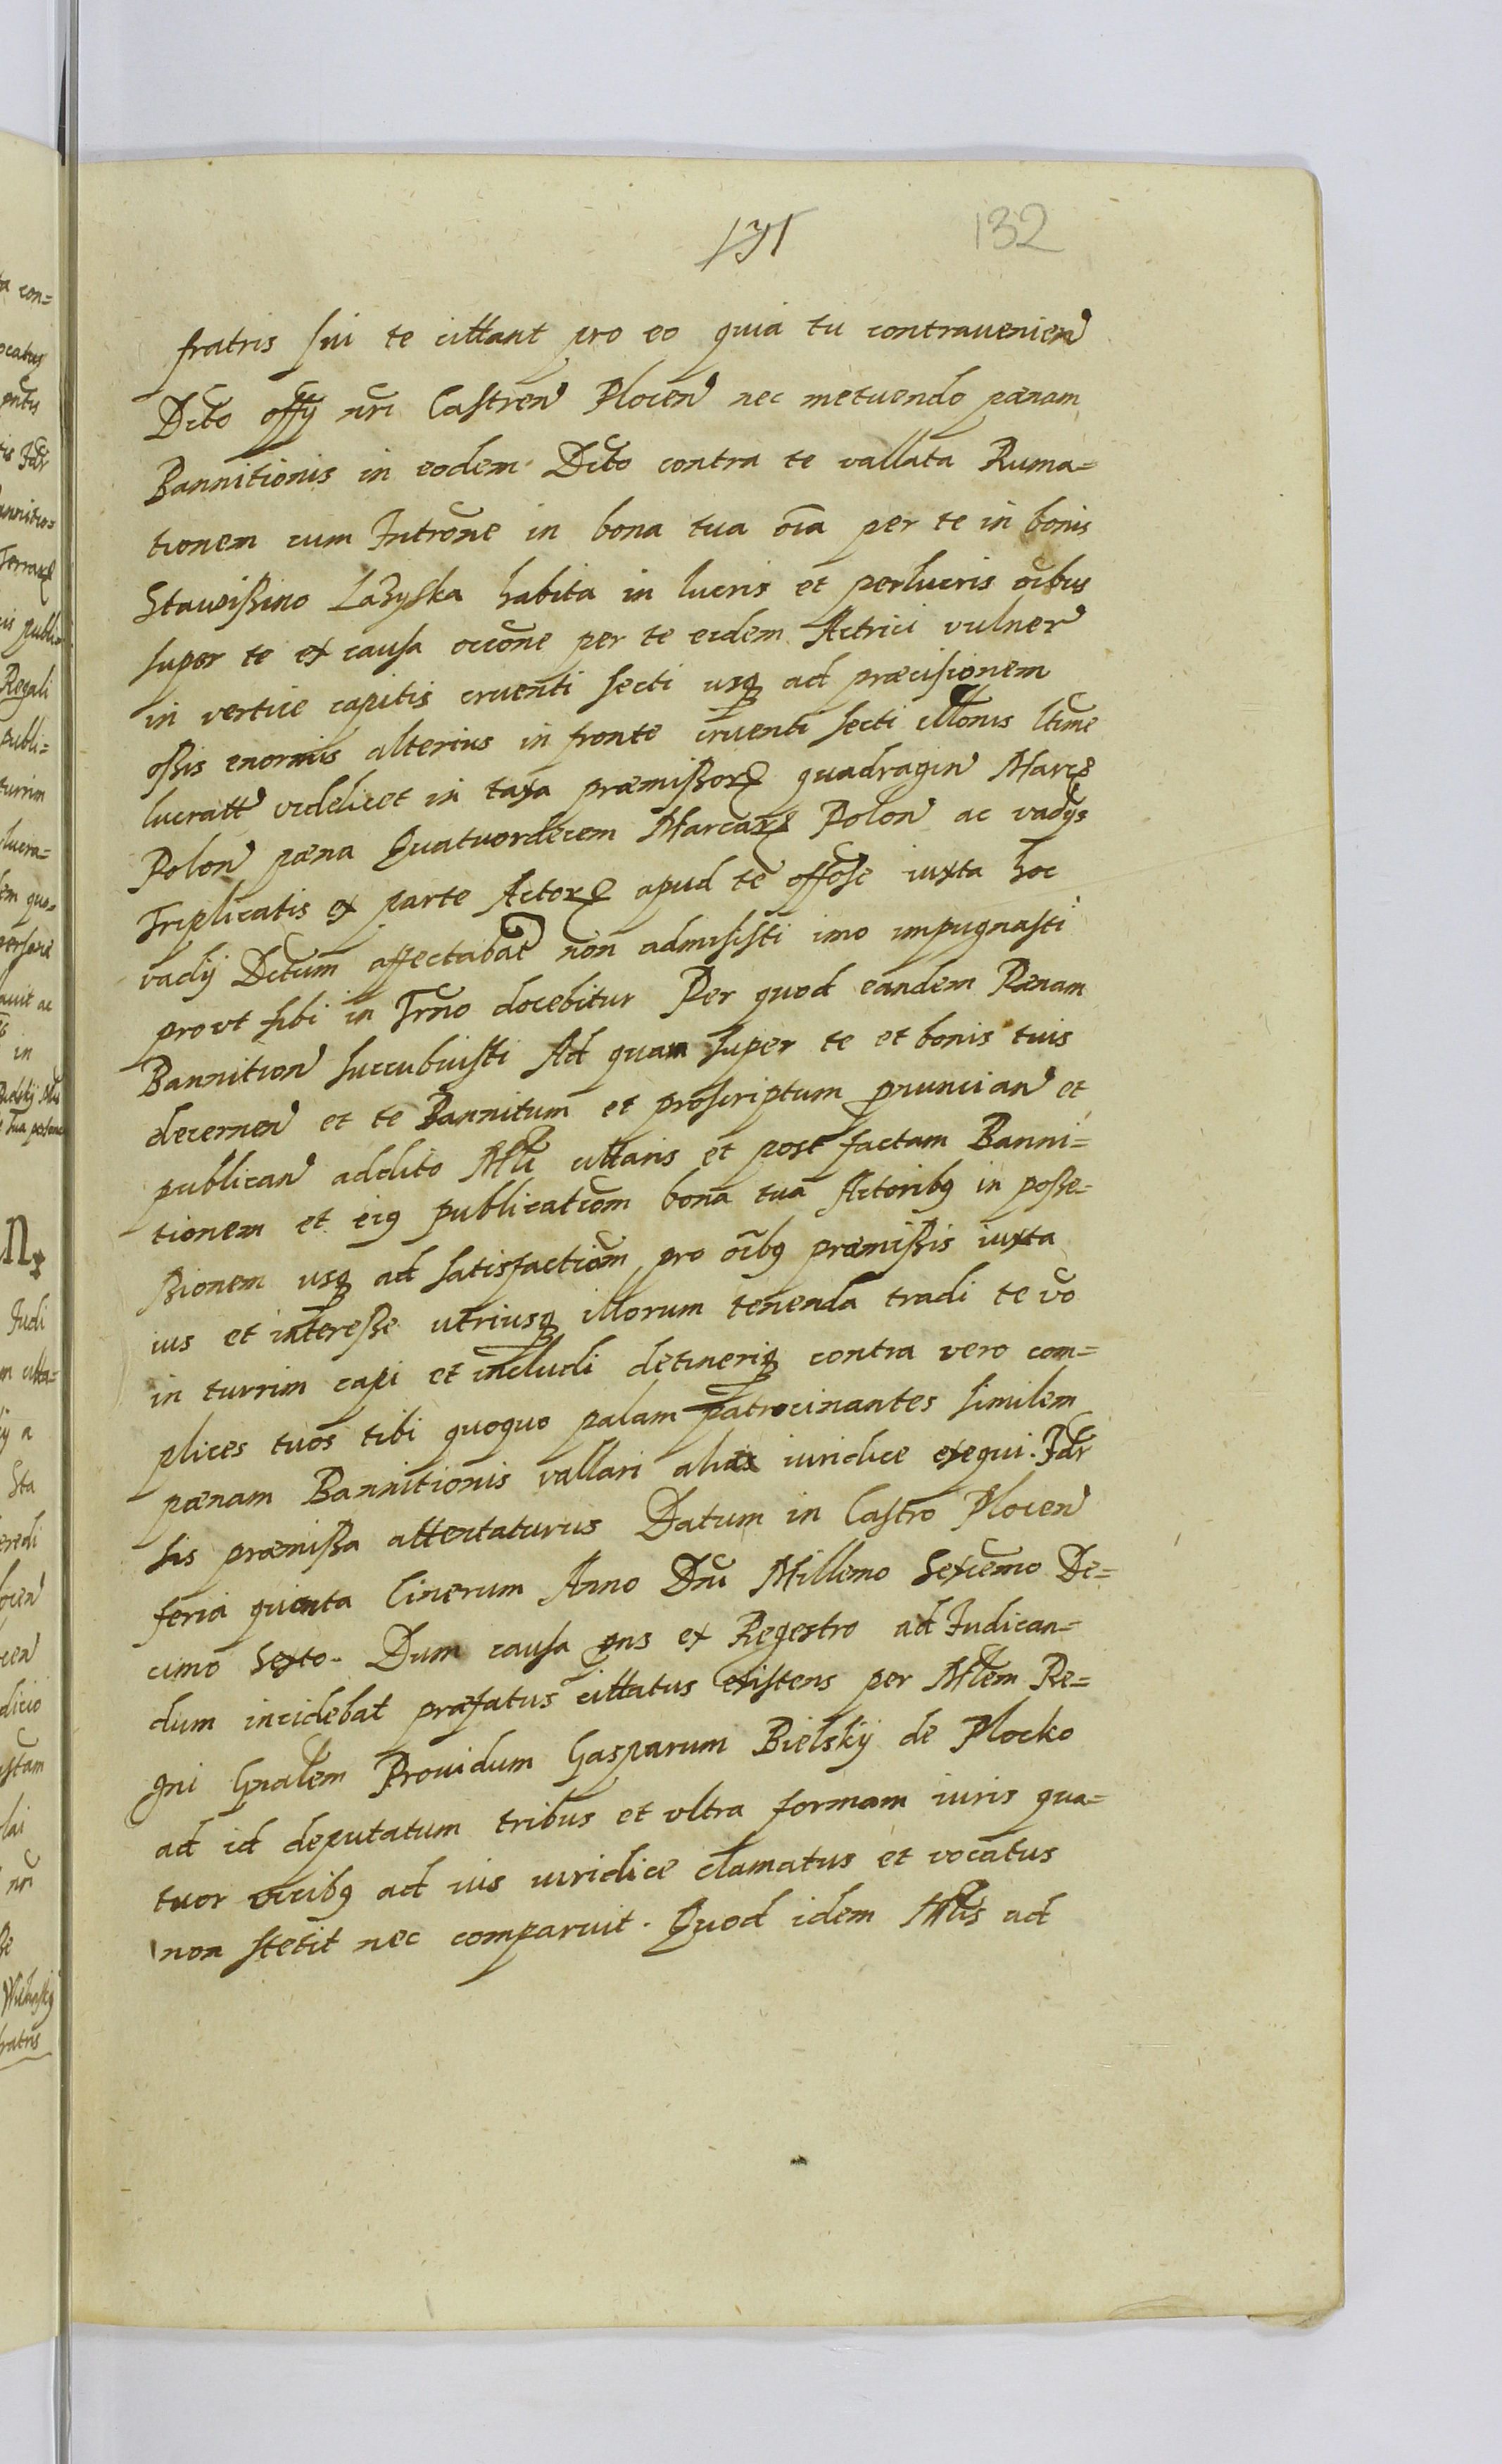 131
132
fratris sui te cittant pro eo quia tu contravenien
Dcto offy nri Castren Plocen nec metuendo pænam
Bannitionis in eodem Dcto contra te vallata Ruma=
tionem cum Introne in bona tua oia per te in bonis
Stawißino Lazyska habita in lucris et perlucris oibus
super te ex causa occone per te eidem Actrici vulner
in vertice capitis cruenti secti usq ad præcisionem
oßis enormis alterius in fronte cruenti secti illonis ltime
lucratt videlicet in taxa præmißor quadragin Marc
Polon pæna Quatuordecem Marcar Polon ac vadys
Triplicatis ex parte Actor apud te offose iuxta hoc
vadij Dctum affectabat non admisisti imo impugnasti
prout tibi in Trno docebitur Per quod eandem Pænam
Bannition succubuisti Ad quam super te et bonis tuis
decernen et te Bannitum et proscriptum prunician et
publican addito Mli cittaris et post factam Banni=
tionem et eig publicatiom bona tua Actoribg in poße=
ßionem usq ad satisfactiom pro oibg præmißis iuxta
ius et intereße utriusq illorum tenenda tradi te vo
in turrim capi et includi detineriq contra vero com=
plices tuos tibi quoquo palam patrocinantes similem
pænam Bannitionis vallari alias iuridice exequi. Idr
sis præmißa attentaturus Datum in Castro Plocen
feria quinta Cinerum Anno Dni Millemo Sexcemo De=
cimo Sexto. Dum causa pns ex Regestro ad Iudican=
dum incidebat præfatus cittatus existens per Mlem Re=
gni Gnalem Prouidum Gasparum Bielskÿ de Plocko
ad id deputatum tribus et ultra formam iuris qua=
tuor vicibg ad ius iuridice clamatus et vocatus
non stetit nec comparuit. Quod idem Mlis ad